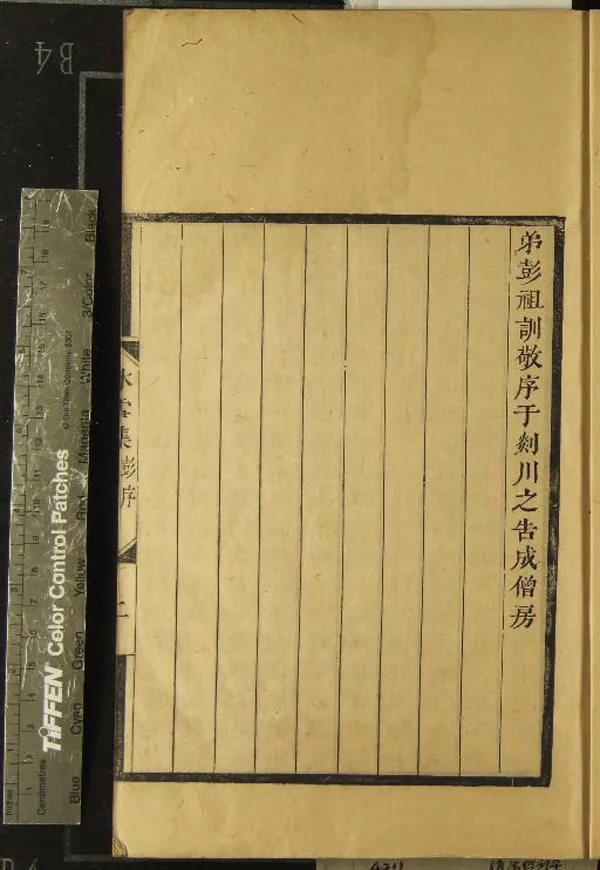 弟彭祖訓敬序于剡川之告成僧房
冰雪集
彭序
二
B4
TIFFEN Color Control Patches
© The Tiffen Company, 2007
Blue Cyan Green Yellow Red Magenta White 3/Color Black
Inches
Centimetres
4211